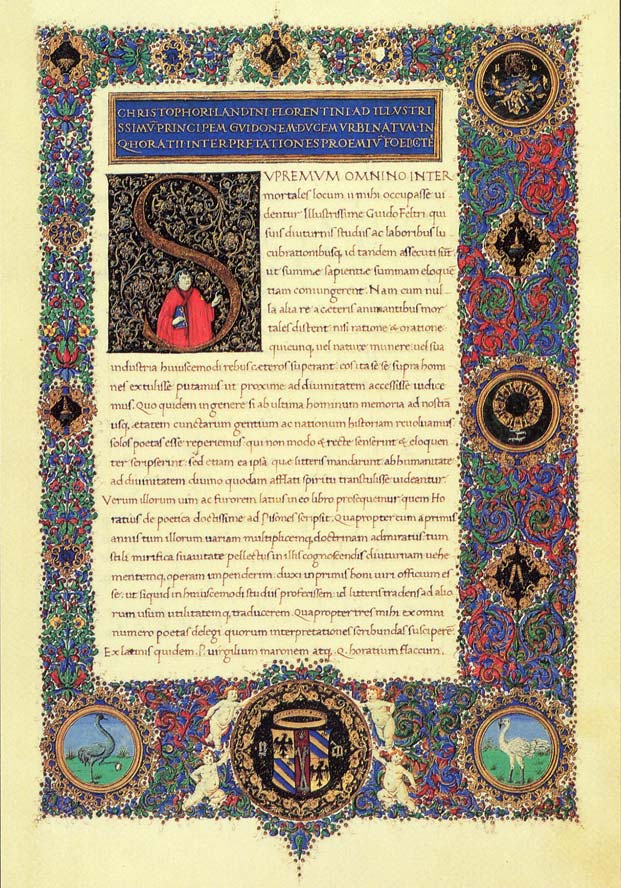 CHRISTOPHORI·LANDINI·FLORENTINI·AD ILLVSTRI
SSIMV̄·PRINCIPEM GVIDONEM·DVCEM VRBINATVM·IN
Q·HORATII·INTERPRETATIONES PROEMIV̄
SVPREMVM OMNINO INTER
mortales locum ii mihi occupasse ui
dentur Illustrissime Guido Feltri qui
suis diuturnis studiis ac laboribus lu
cubrationibusq; id tandem assecuti sūt
ut summæ sapientiæ summam eloquē
tiam coniungerent. Nam cum nul
la alia re a cæteris animantibus mor
tales distent nisi ratione & oratione
quicunq; uel naturæ munere uel sua
industria huiuscemodi rebus cæteros superant: eos ita se se supra homi
nes extulisse putamus ut proxime ad diuinitatem accessisse iudice
mus. Quo quidem in genere si ab ultima hominum memoria ad nostrā
usq; ætatem cunctarum gentium ac nationum historiam reuoluamus
solos poetas esse reperiemus qui non modo & recte senserint & eloquen
ter scripserint: sed etiam ea ipsa quæ litteris mandarunt ab humanitate
ad diuinitatem diuino quodam afflati spiritu transtulisse uideantur.
Verum illorum uim ac furorem latius in eo libro prosequemur quem Ho
ratius de poetica doctissime ad Pisones scripsit. Quapropter cum a primis
annis tum illorum uariam multiplicemq; doctrinam admiratus: tum
stili mirifica suauitate pellectus in illis cognoscendis diuturnam uehe
mentemq; operam impenderim: duxi in primis boni uiri officium es
se: ut siquid in huiuscemodi studiis profecissem: id litteris tradens ad alio
rum usum utilitatemq; traducerem. Quapropter tres mihi ex omni
numero poetas delegi quorum interpretationes scribendas susciperē
Ex latinis quidem .P. uirgilium maronem atq; .Q. horatium flaccum.